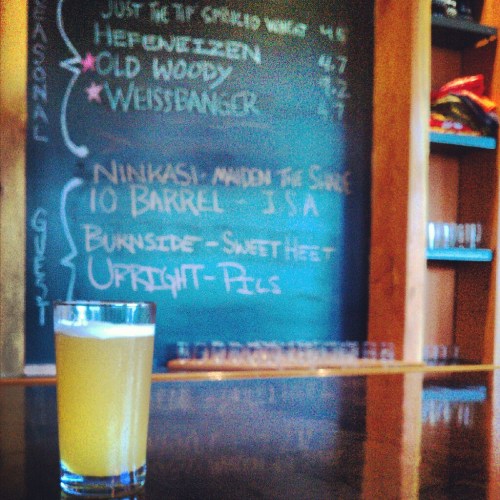 SEASONAL
JUST THE TIP SPRUCED WHEAT 4.5
HEFEWEIZEN 4.7
OLD WOODY 7.2
WEISSBANGER 4.7
GUEST
NINKASI - MAIDEN THE SHADE
10 BARREL - ISA
BURNSIDE - SWEET HEET
UPRIGHT - PILS